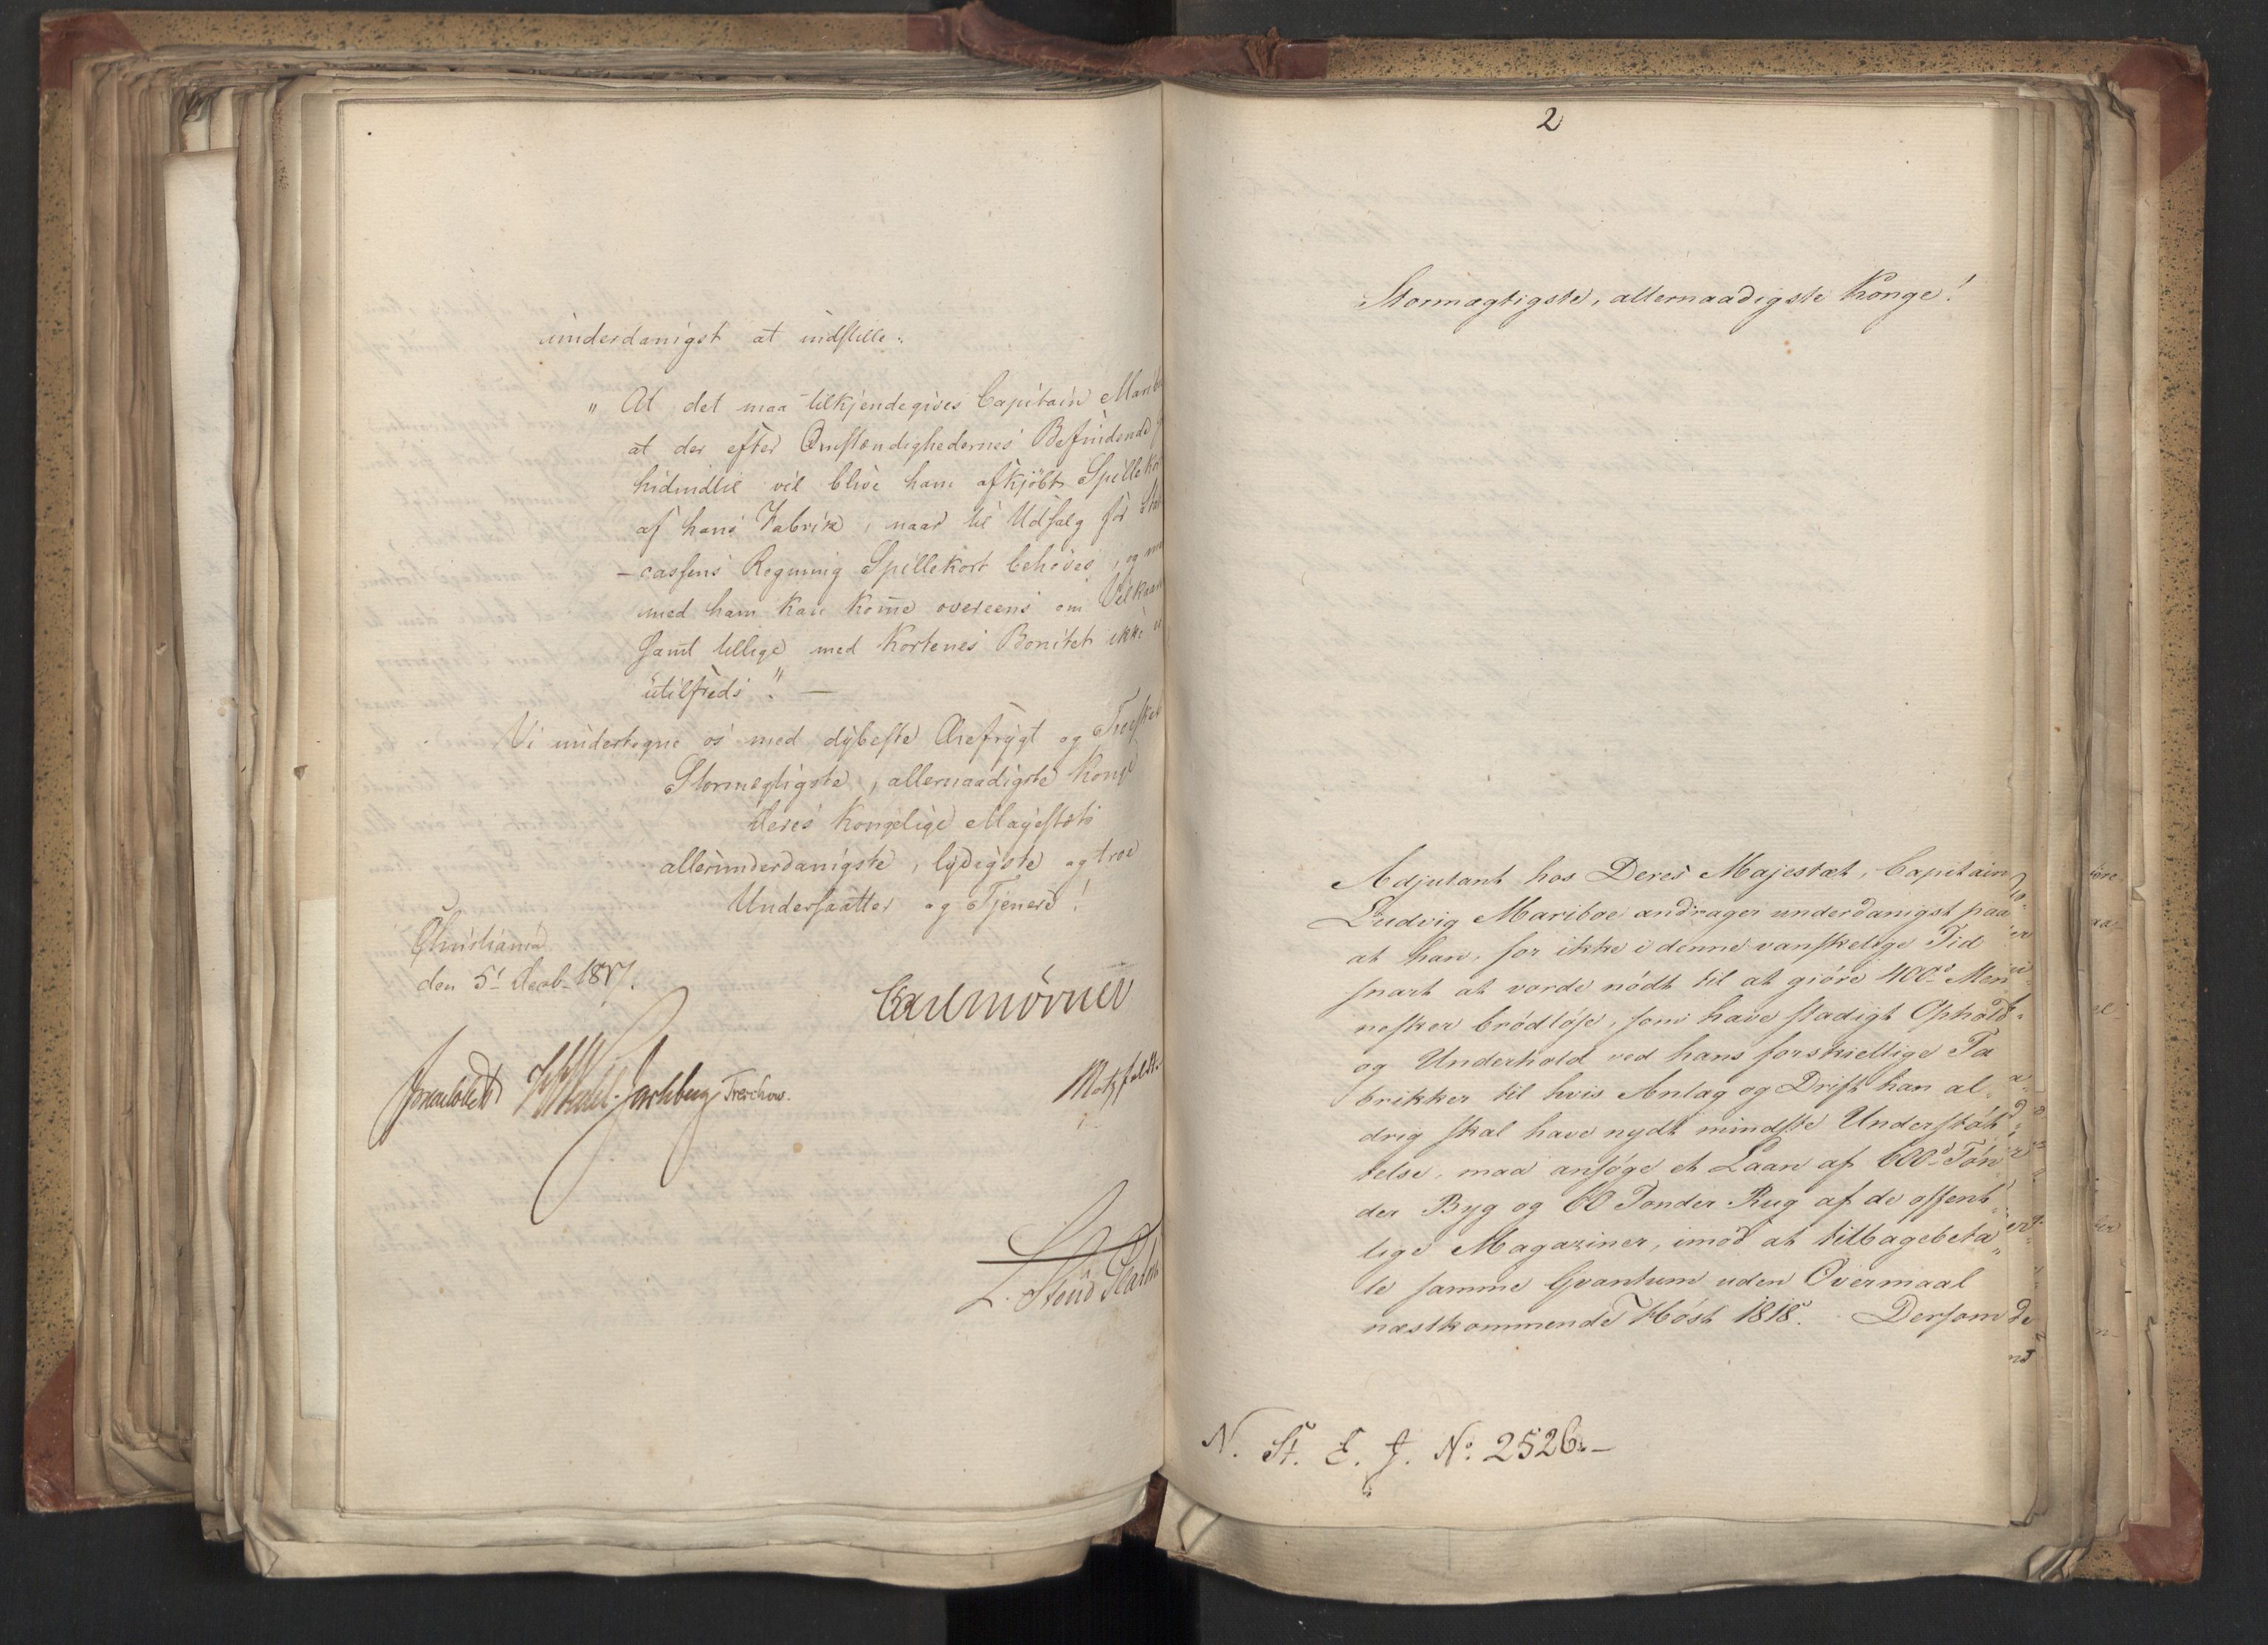 underdanigst at indstille:
" At det maa tilkjendegives Capitain Marib
at der efter Omstændighedernes Befindende
hidindtil vil blive ham afkjöbt Spillekor
af hans Fabrik, naar til Udsalg for Sta
-cassens Regning Spillekort behöves, og m
med ham kan kom̄e overeens om Vilkaar
samt tillige med Kortenes Bonitet ikke
utilfreds". —
Vi undertegne os med dybeste Ærefrygt og Troeska
Stormægtigste, allernaadigste Konge
Deres Kongelige Majestæts
allerunderdanigste, lydigste og troe
Undersaatter og Tjenere!
Christiania
den 5t Decb. 1817.
Carl Mörner
Sommerhielm HWedel-Jarlsberg Treschow.
Motzfeldt
L. Stoud Platou
2
Stormægtigste, allernaadigste Konge!
Adjutant hos Deres Majestæt, Capitain
Ludvig Mariboe andrager underdanigst paa
at han, for ikke i denne vanskelige Tid
snart at vorde nödt til at giöre 400d Men
nesker brödlöse, som have stadigt Ophold
og Underhold ved hans forskiellige Fa
brikker til hvis Anlæg og Drift han al-
drig skal have nydt mindste Understöt
telse, maa ansöge et Laan af 600d Tön
der Byg og 60 Tönder Rug af de offent
lige Magaziner, imod at tilbagebeta"
le samme Qvantum uden Overmaal
næstkommende Höst 1818. Dersom
N. St. E. J. No: 2526.—